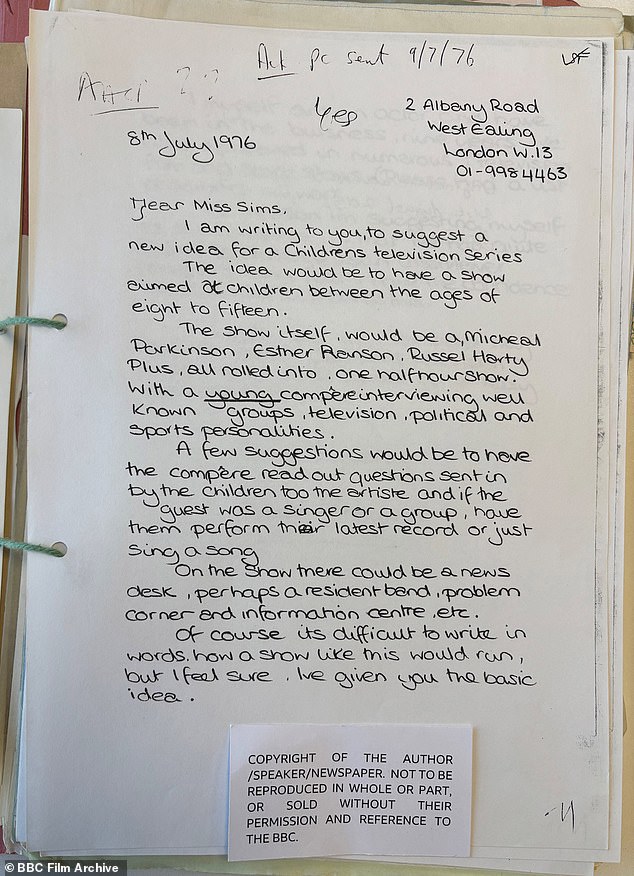 Act pc sent 9/7/76
Yes
2 Albany Road
West Ealing
London W.13
01-998 4463
8th July 1976
Dear Miss Sims,
I am writing to you, to suggest a
new idea for a Childrens television series
The idea would be to have a show
aimed at children between the ages of
eight to fifteen.
The show itself, would be a, Micheal
Parkinson, Esther Ranson, Russel Harty
Plus, all rolled into, one half hour show.
With a young compère interviewing well
known groups, television, political and
sports personalities.
A few suggestions would be to have
the compère read out questions sent in
by the children too the artiste and if the
guest was a singer or a group, have
them perform their latest record or just
sing a song
On the show there could be a news
desk, perhaps a resident band, problem
corner and information centre, etc.
Of course its difficult to write in
words, how a show like this would run,
but I feel sure, Ive given you the basic
idea.
COPYRIGHT OF THE AUTHOR
/SPEAKER/NEWSPAPER. NOT TO BE
REPRODUCED IN WHOLE OR PART,
OR SOLD WITHOUT THEIR
PERMISSION AND REFERENCE TO
THE BBC.
© BBC Film Archive